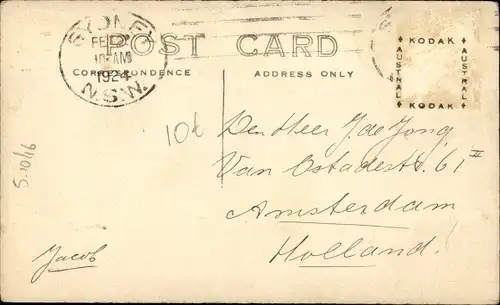 SYDNEY
FE
10 AM
1924
N.S.W.
POST CARD
CORRESPONDENCE
ADDRESS ONLY
KODAK
AUSTRAL
AUSTRAL
KODAK
10t
5.10/16
Den Heer J. de Jong.
Van Ostadestr. 61 II
Amsterdam
Holland!
Jacob